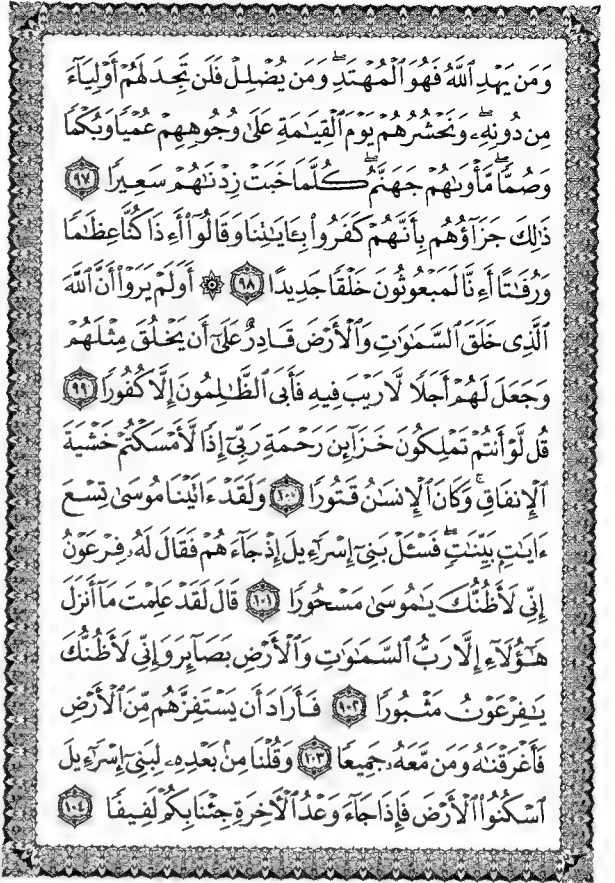 وَمَن يَهْدِ ٱللَّهُ فَهُوَ ٱلْمُهْتَدِۖ وَمَن يُضْلِلْ فَلَن تَجِدَ لَهُمْ أَوْلِيَآءَ
مِن دُونِهِۦۖ وَنَحْشُرُهُمْ يَوْمَ ٱلْقِيَـٰمَةِ عَلَىٰ وُجُوهِهِمْ عُمْيًا وَبُكْمًا
وَصُمًّاۖ مَّأْوَىٰهُمْ جَهَنَّمُۖ كُلَّمَا خَبَتْ زِدْنَـٰهُمْ سَعِيرًا ٩٧
ذَٰلِكَ جَزَآؤُهُم بِأَنَّهُمْ كَفَرُوا۟ بِـَٔايَـٰتِنَا وَقَالُوٓا۟ أَءِذَا كُنَّا عِظَـٰمًا
وَرُفَـٰتًا أَءِنَّا لَمَبْعُوثُونَ خَلْقًا جَدِيدًا ٩٨ ۞ أَوَلَمْ يَرَوْا۟ أَنَّ ٱللَّهَ
ٱلَّذِى خَلَقَ ٱلسَّمَـٰوَٰتِ وَٱلْأَرْضَ قَادِرٌ عَلَىٰٓ أَن يَخْلُقَ مِثْلَهُمْ
وَجَعَلَ لَهُمْ أَجَلًا لَّا رَيْبَ فِيهِ فَأَبَى ٱلظَّـٰلِمُونَ إِلَّا كُفُورًا ٩٩
قُل لَّوْ أَنتُمْ تَمْلِكُونَ خَزَآئِنَ رَحْمَةِ رَبِّىٓ إِذًا لَّأَمْسَكْتُمْ خَشْيَةَ
ٱلْإِنفَاقِۚ وَكَانَ ٱلْإِنسَـٰنُ قَتُورًا ١٠٠ وَلَقَدْ ءَاتَيْنَا مُوسَىٰ تِسْعَ
ءَايَـٰتٍۭ بَيِّنَـٰتٍۖ فَسْـَٔلْ بَنِىٓ إِسْرَٰٓءِيلَ إِذْ جَآءَهُمْ فَقَالَ لَهُۥ فِرْعَوْنُ
إِنِّى لَأَظُنُّكَ يَـٰمُوسَىٰ مَسْحُورًا ١٠١ قَالَ لَقَدْ عَلِمْتَ مَآ أَنزَلَ
هَـٰٓؤُلَآءِ إِلَّا رَبُّ ٱلسَّمَـٰوَٰتِ وَٱلْأَرْضِ بَصَآئِرَ وَإِنِّى لَأَظُنُّكَ
يَـٰفِرْعَوْنُ مَثْبُورًا ١٠٢ فَأَرَادَ أَن يَسْتَفِزَّهُم مِّنَ ٱلْأَرْضِ
فَأَغْرَقْنَـٰهُ وَمَن مَّعَهُۥ جَمِيعًا ١٠٣ وَقُلْنَا مِنۢ بَعْدِهِۦ لِبَنِىٓ إِسْرَٰٓءِيلَ
ٱسْكُنُوا۟ ٱلْأَرْضَ فَإِذَا جَآءَ وَعْدُ ٱلْـَٔاخِرَةِ جِئْنَا بِكُمْ لَفِيفًا ١٠٤